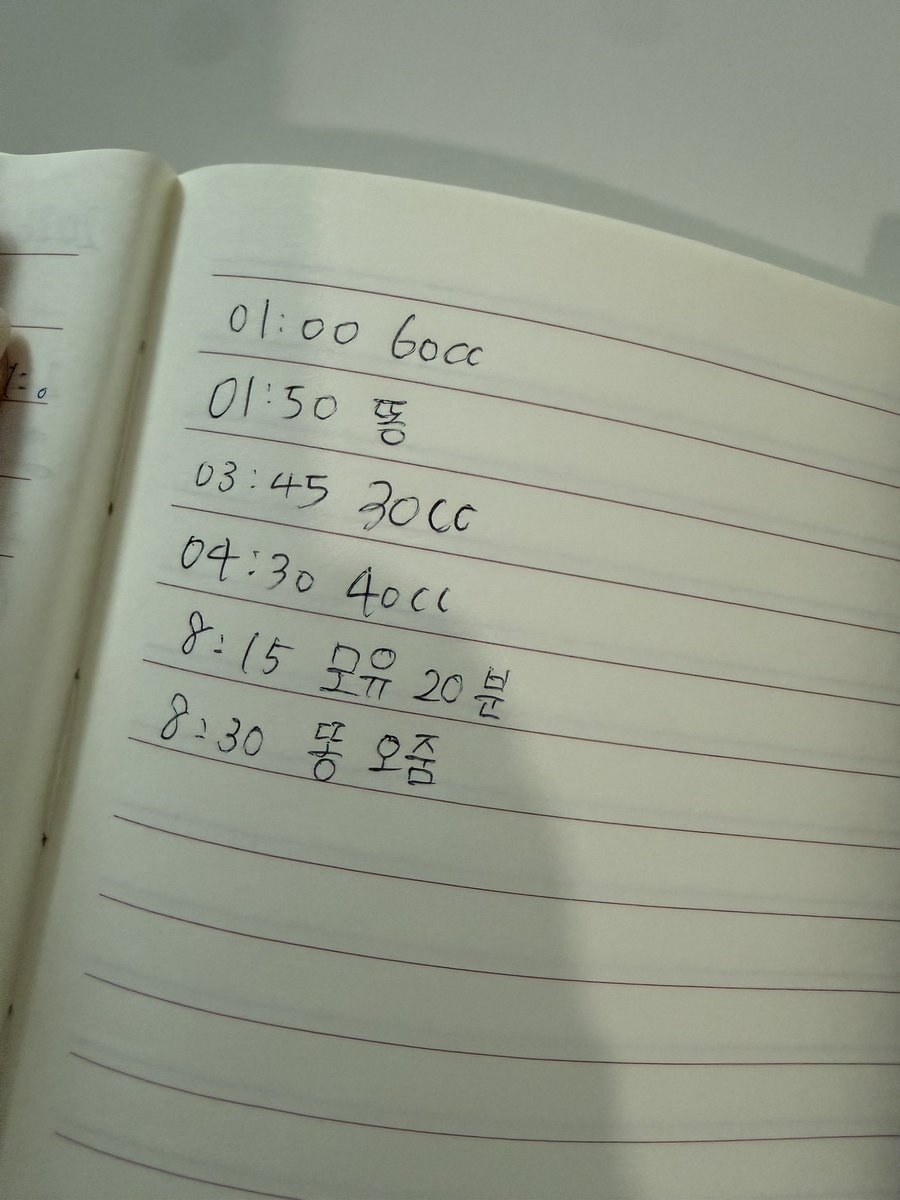 01:00 60cc
01:50 똥
03:45 30cc
04:30 40cc
8:15 모유 20분
8:30 똥 오줌